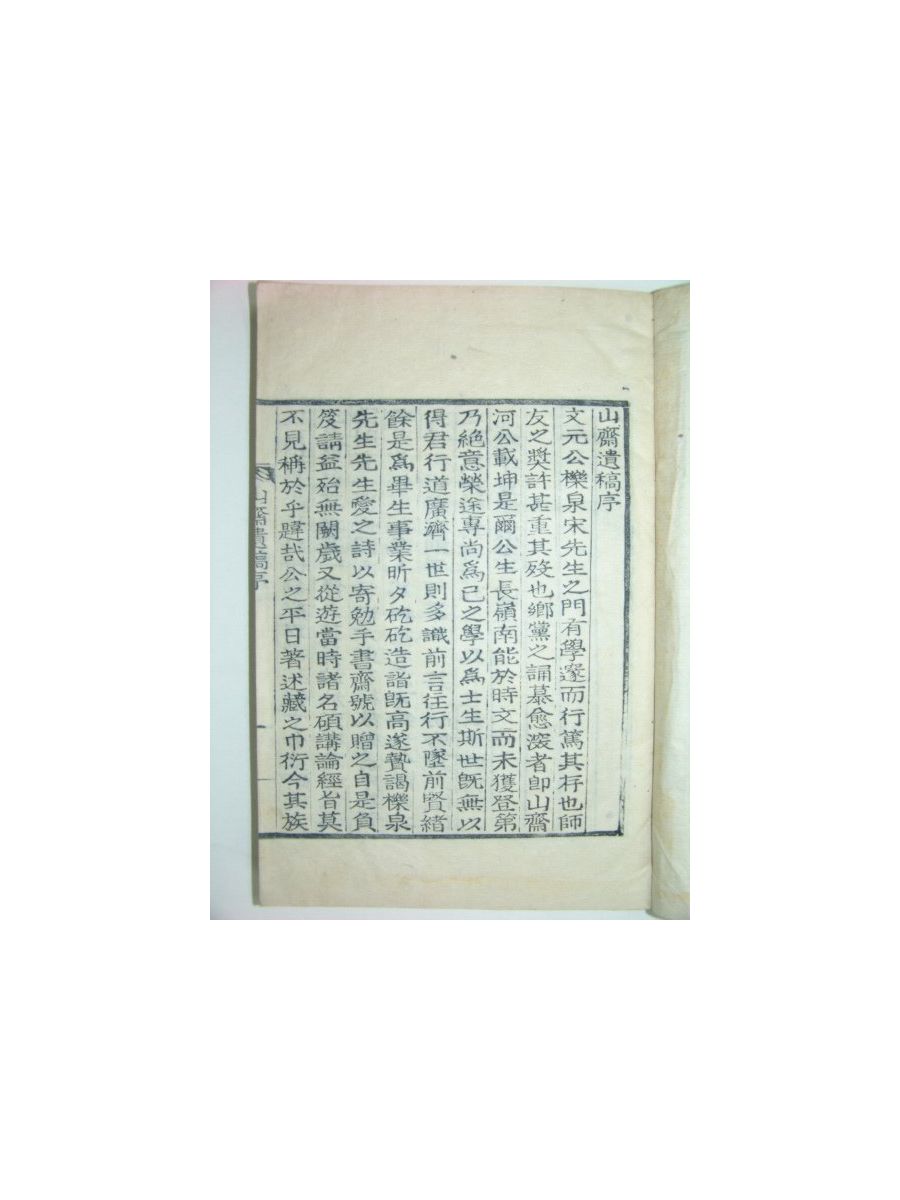 山齋遺稿序
文元公櫟泉宋先生之門有學邃而行篤其存也師
友之奬許甚重其歿也鄕黨之誦慕愈深者卽山齋
河公載坤是爾公生長嶺南能於時文而未獲登第
乃絶意榮途專尙爲己之學以爲士生斯世旣無以
得君行道廣濟一世則多識前言往行不墜前賢緖
餘是爲畢生事業昕夕矻矻造詣旣高遂贄謁櫟泉
先生先生愛之詩以寄勉手書齋號以贈之自是負
笈請益殆無闕歲又從遊當時諸名碩講論經旨莫
不見稱於乎韙哉公之平日著述藏之巾衍今其族
山齋遺稿序